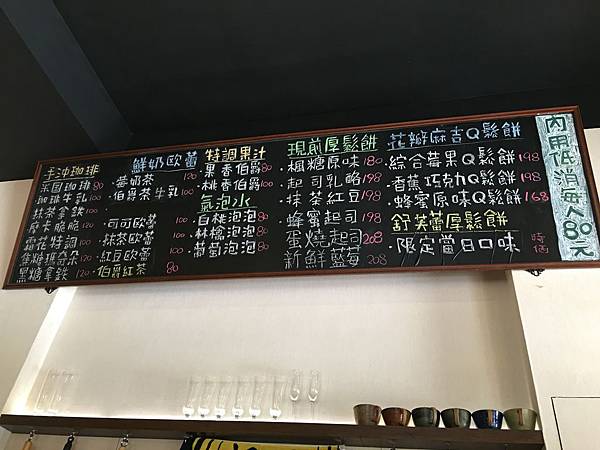 手沖珈琲
果園珈琲 80
珈琲牛乳 100
抹茶拿鐵 100
摩卡脆脆 120
霜糖特調 120
焦糖瑪奇朵 120
黑糖拿鐵 120
鮮奶歐蕾
莓奶茶 120
伯爵茶牛乳 100
可可歐蕾 100
抹茶歐蕾 100
紅豆歐蕾 100
伯爵紅茶 80
特調果汁
果香伯爵 80
桃香伯爵 80
氣泡水
白桃泡泡 80
林檎泡泡 80
葡萄泡泡 80
現煎厚鬆餅
楓糖原味 180
起司乳酪 198
抹茶紅豆 198
蜂蜜起司 198
蛋燒起司 208
新鮮藍莓 208
花瓣麻吉Q鬆餅
綜合莓果Q鬆餅 198
香蕉巧克力Q鬆餅 198
蜂蜜原味Q鬆餅 168
舒芙蕾厚鬆餅
限定當日口味 時價
內用低消每人80元